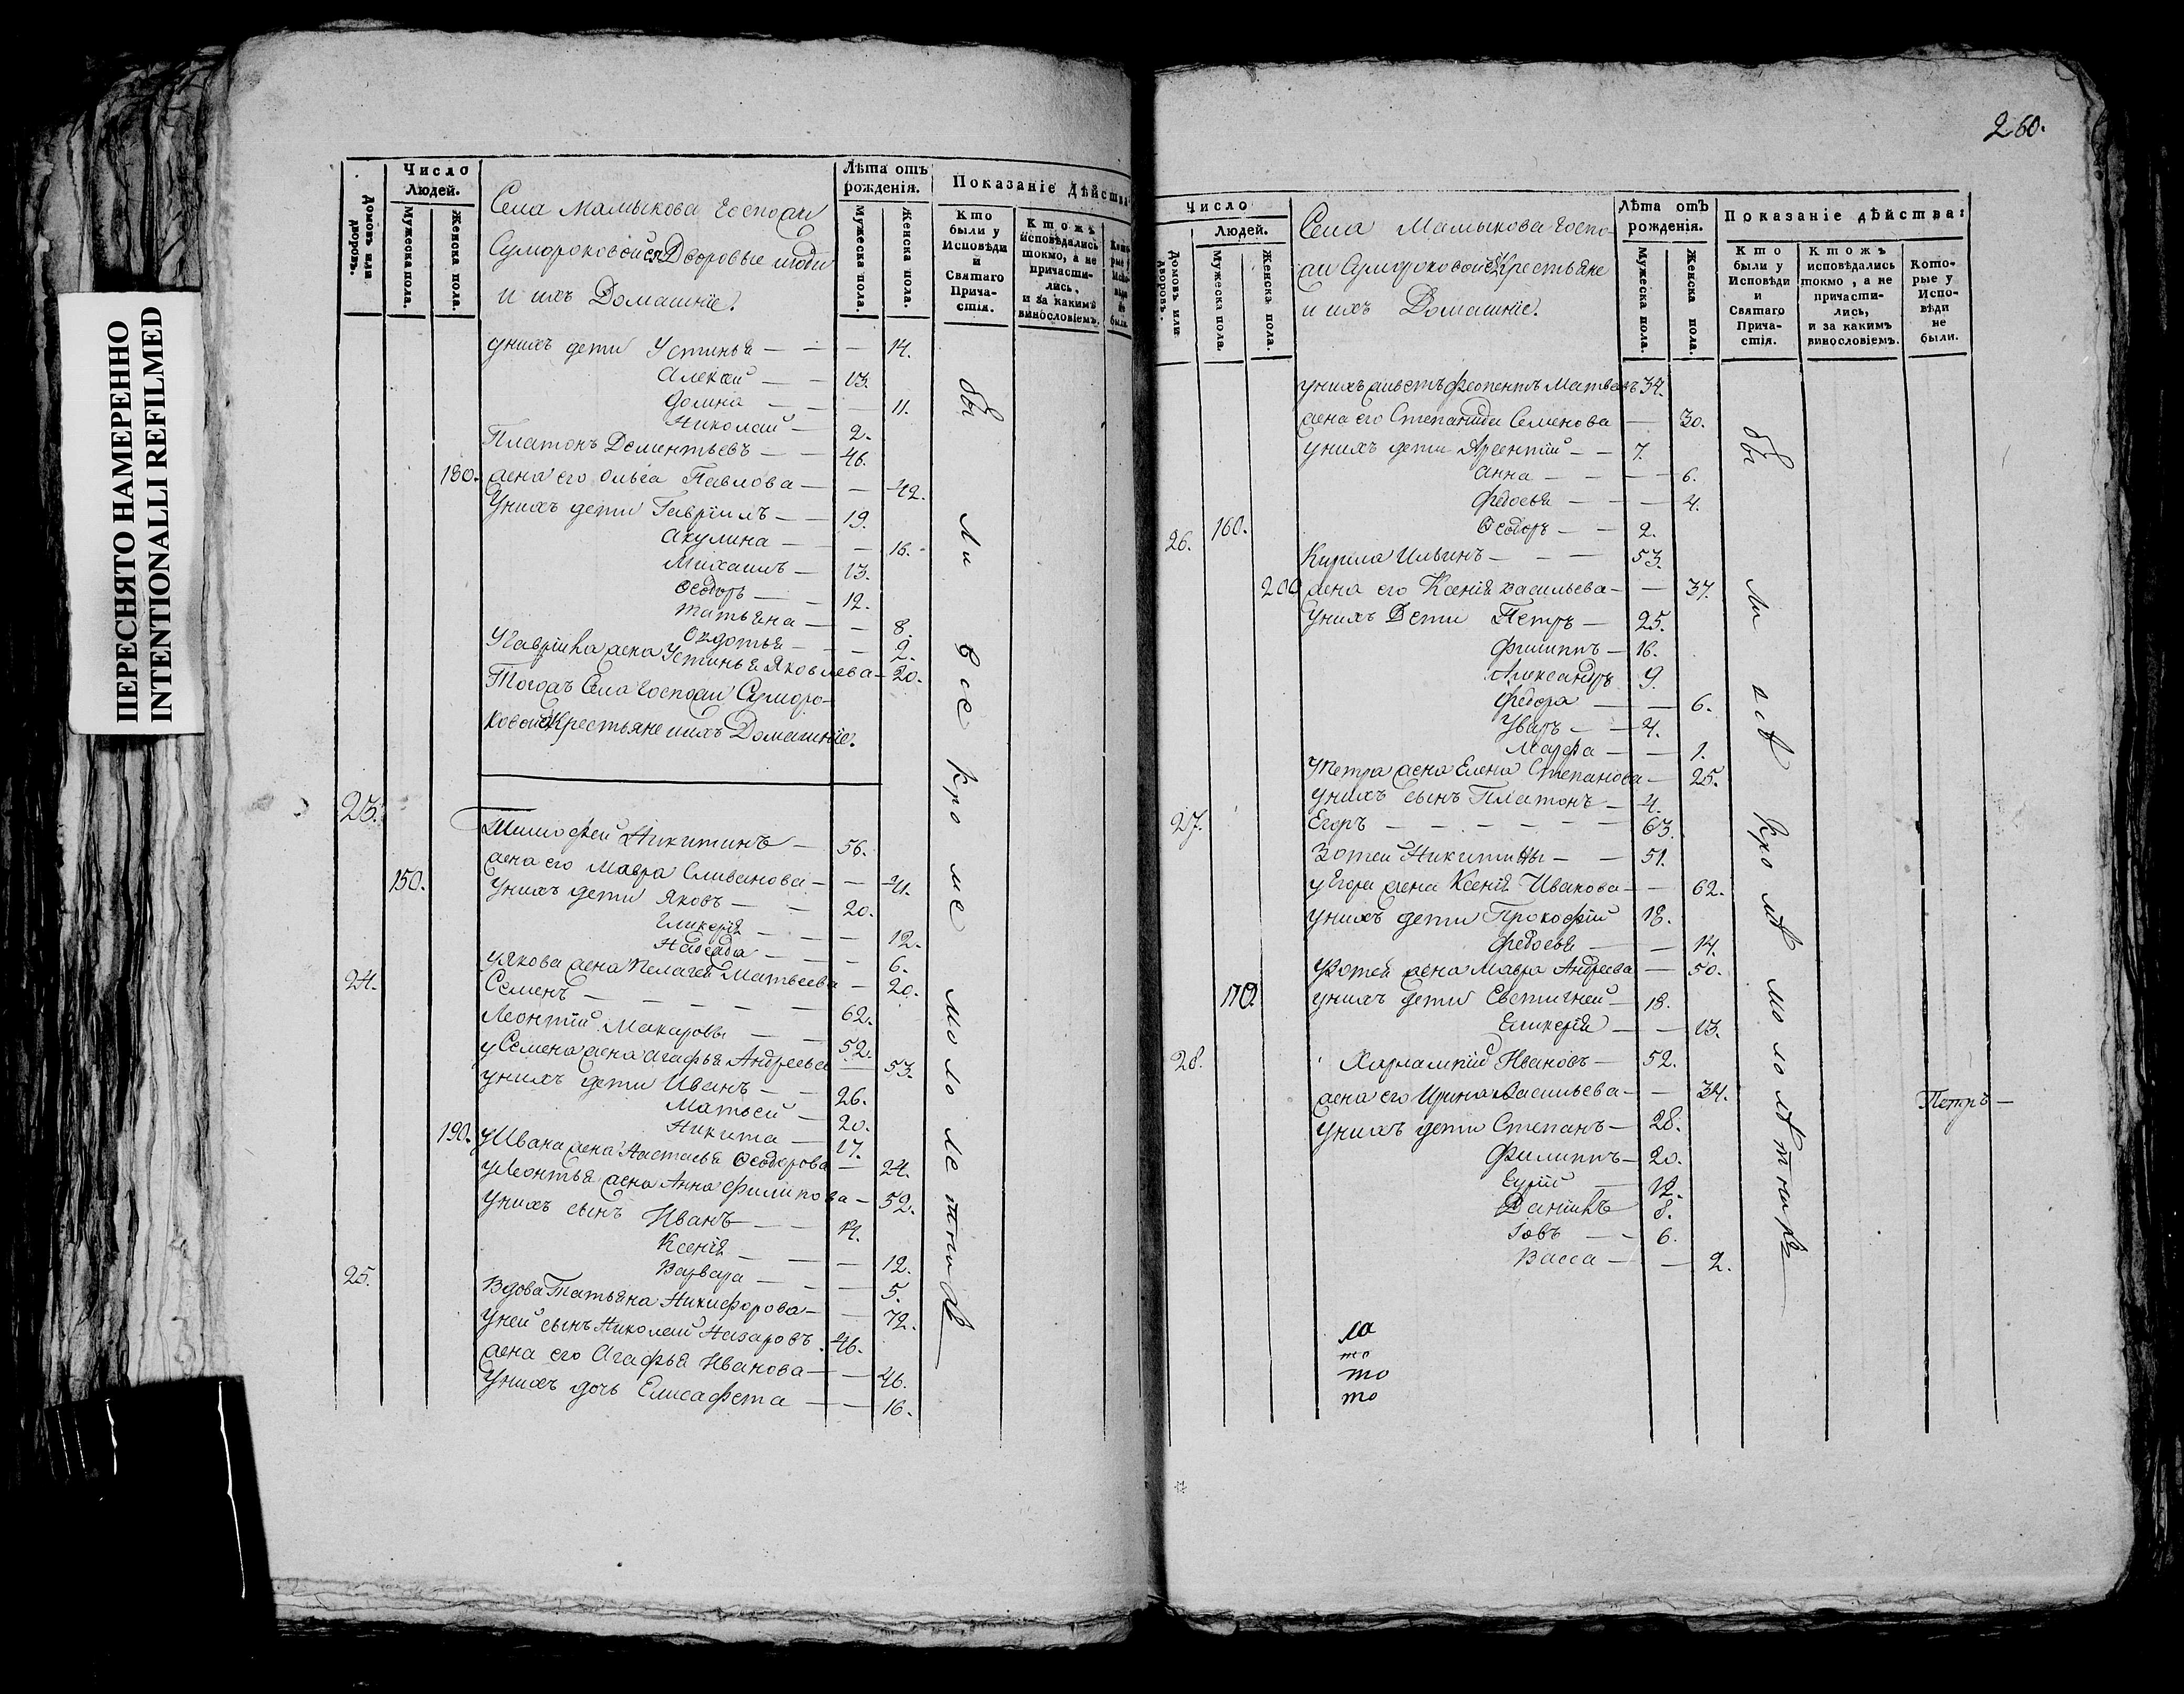 ПЕРЕСНЯТО НАМЕРЕННО
INTENTIONALLI REFILMED
Домовъ или дворовъ.
Число
Людей.
Мужеска пола.
Женска пола.
Села Мамыкова Госпожи
Сумороковой Дворовые люди
и ихъ Домашніе.
Лѣта отъ
рожденія.
Мужеска пола.
Женска пола.
Показаніе дѣйства
Кто
были у
Исповѣди
и
Святаго
Прича-
стія.
Ктожъ
исповѣдались
токмо, а не
причасти-
лись,
и за какимъ
винословіемъ.
унихъ дети Устинья — 14.
Алексей — 13.
11.
Николай — 2.
Платонъ Дементьевъ — 46.
180. жена его Ольга Павлова — 42.
Унихъ дети Гавріилъ — 19.
Акулина — 15.
Михаилъ — 13.
Ѳеодоръ — 12.
Татьяна — 8.
Овдотья — 2.
УГавріила жена Устинья Яковлева — 20.
Тогожъ Села Госпожи Суморо-
ковой Крестьяне иихъ Домашніе.
23.
Тимофей Никитинъ — 56.
жена его Мавра Сливанова — 41.
150. Унихъ дети Яковъ — 20.
Гликерія — 12.
Надежда — 6.
уЯкова жена Пелагея Матвеева — 20.
24. Семенъ — 62.
Леонтій Макаровы — 52.
уСемена жена Агафья Андреева — 53.
унихъ дети Иванъ — 26.
Матвей — 20.
Никита — 17.
190. уИвана жена Настасья Ѳеодорова — 24.
уЛеонтья жена Анна Филипова — 52.
Унихъ сынъ Иванъ — 14.
Ксенія — 12.
Варвара — 5.
25. Вдова Татьяна Никифорова — 72.
Уней сынъ Николай Назаровъ 46.
жена его Агафья Иванова — 46.
Унихъ дочь Елисафета — 16.
бы ли все кроме мололетнихъ
260.
Домовъ или дворовъ.
Число
Людей.
Мужеска пола.
Женска пола.
Села Мамыкова Госпо-
жи Сумороковой Крестьяне
и ихъ Домашніе.
Лѣта отъ
рожденія.
Мужеска пола.
Женска пола.
Показаніе дѣйства:
Кто
были у
Исповѣди
и
Святаго
Прича-
стія.
Ктожъ
исповѣдались
токмо, а не
причасти-
лись,
и за какимъ
винословіемъ.
Кото-
рые у
Испо-
вѣди
не
были.
унихъ Матвеевъ 34.
жена его Степанида Семенова — 30.
Унихъ дети Арсентій — 7.
Анна — 6.
Федосья — 4.
160. Ѳеодоръ — 2.
26. Кирила Ильинъ — 53.
200 жена его Ксенія Васильева — 37.
Унихъ Дети Петръ — 25.
Филиппъ — 16.
Александръ 9.
Федора — 6.
Уваръ — 4.
Марфа — 1.
уПетра жена Елена Степанова — 25.
унихъ сынъ Платонъ — 4.
27. Егоръ — 63.
Зотей Никитины — 51.
уЕгора жена Ксенія Иванова — 62.
унихъ дети Прокофій 18.
Федосья — 14.
уЗотея жена Мавра Андреева — 50.
170. унихъ дети Евстигней — 18.
Гликерія — 13.
28. Харлампій Ивановъ — 52.
жена его Ирина Васильева — 34.
Унихъ дети Степанъ — 28.
Филиппъ — 20.
Гурій — 12.
Даніилъ 8.
Іовъ — 6.
Васса — 2.
бы ли всѣ кромѣ молольтнихъ
Петръ —
ла
то
то
то